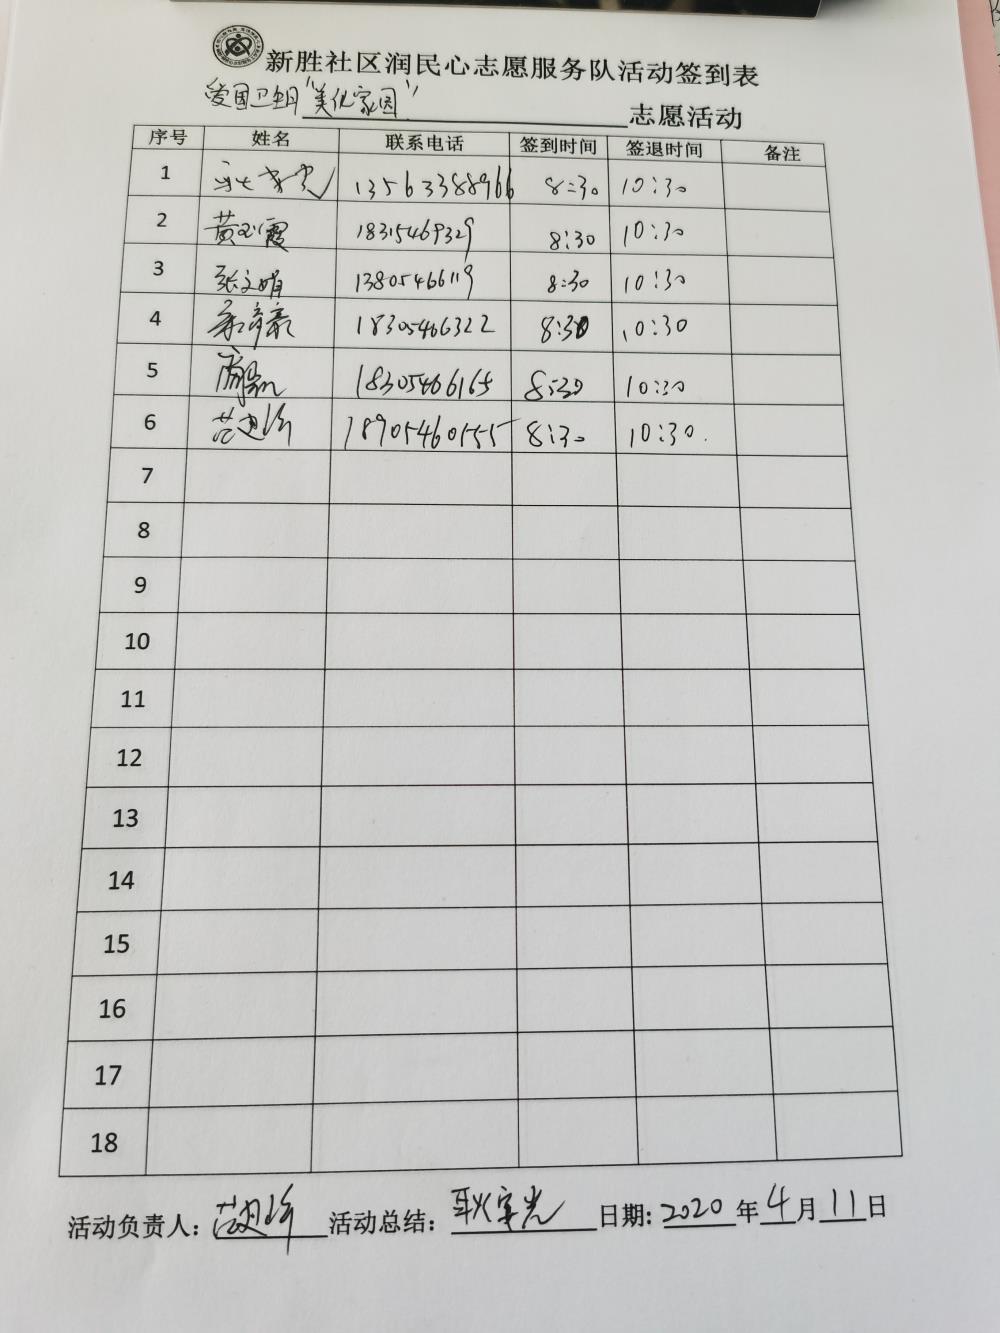 新胜社区润民心志愿服务队活动签到表
爱国卫生月"美化家园" 志愿活动
序号 姓名 联系电话 签到时间 签退时间 备注
1 13563388966 8:30 10:30
2 黄玉霞 18315469329 8:30 10:30
3 张文娟 13805466119 8:30 10:30
4 18305466322 8:30 10:30
5 18305466165 8:30 10:30
6 18905460555 8:30 10:30.
7
8
9
10
11
12
13
14
15
16
17
18
活动负责人: 活动总结: 日期: 2020 年 4 月 11 日